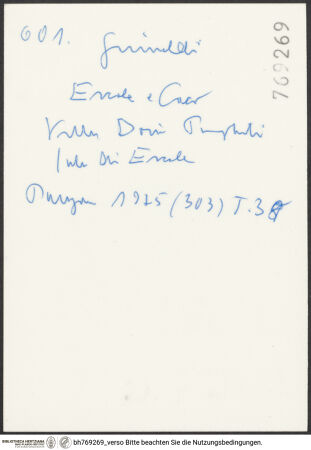 601. Grimaldi
769269
Ercole e Caco
Villa Doria Pamphili
Sala di Ercole
1975 (303) T. 38
BIBLIOTHECA HERTZIANA
bh769269_verso Bitte beachten Sie die Nutzungsbedingungen.